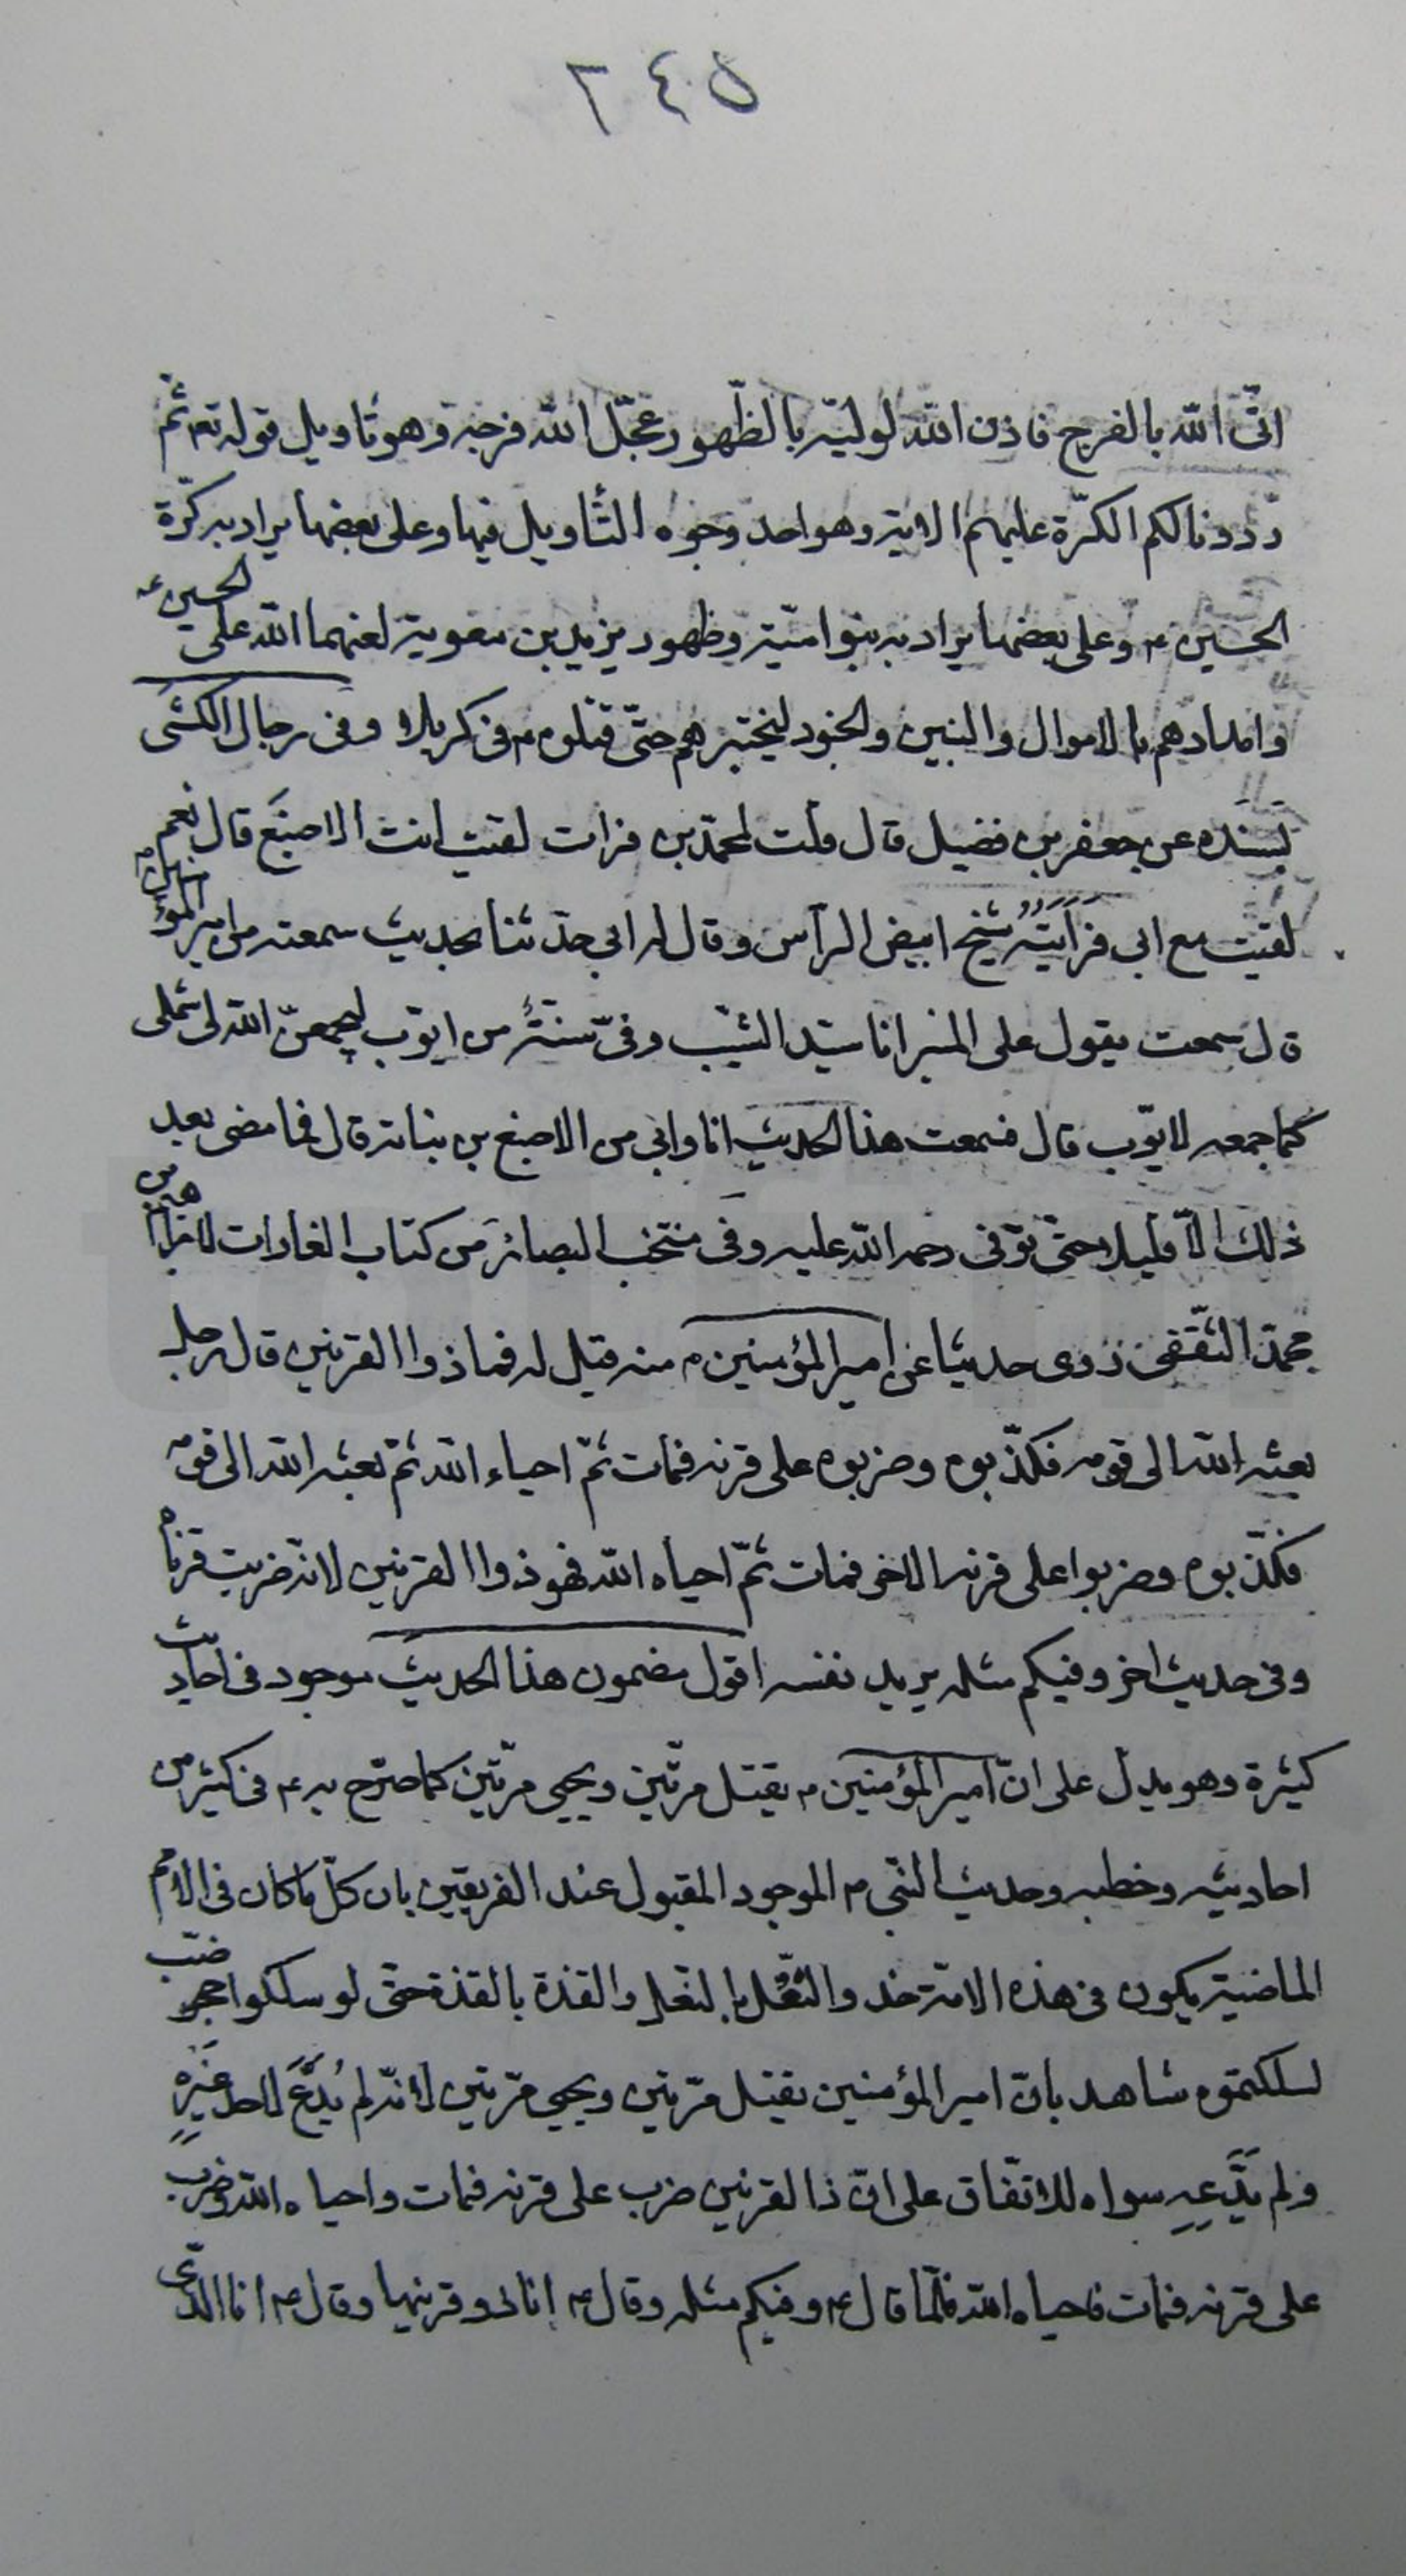 ٢٤٥
اتى الله بالفرج فاذن الله لوليّه بالظّهور وعجّل الله فرجه وهو تاويل قوله تع ثمّ
رددنا لكم الكرّة عليهم الاية وهو احد وجوه التّأويل فيها وعلى بعضها يراد به كرّة
الحسين ع وعلى بعضها يراد به بنو اميّة وظهور يزيد بن معوية لعنهما الله على الحسين ع
وامدادهم بالاموال والبنين والجنود ليختبرهم حتّى قتلوه ع فى كربلا وفى رجال الكشى
بسنده عن جعفر بن فضيل قال قلت لمحمّد بن فرات لقيت انت الاصبغ قال نعم
لقيت مع ابى فرأيته شيخ ابيض الرأس وقال له ابى حدّثنا بحديث سمعته من امير المؤمنين ع
قال سمعت يقول على المنبر انا سيّد الشيب وفىّ سنّة من ايّوب ليجمعنّ الله لى شملى
كما جمعه لايّوب قال فسمعت هذا الحديث انا وابى من الاصبغ بن نباته قال فما مضى بعد
ذلك الاّ قليلا حتّى توفى رحمه الله عليه وفى منتخب البصائر من كتاب الغارات لابراهيم بن
محمّد الثّقفى روى حديثا عن امير المؤمنين ع منه قيل له فما ذوا القرنين قال رجل
بعثه الله الى قومه فكذّبوه وضربوه على قرنه فمات ثمّ احياء الله ثمّ بعثه الله الى قومه
فكذّبوه وضربوا على قرنه الاخر فمات ثمّ احياه الله فهو ذوا القرنين لانّه ضربت قرناه
وفى حديث اخر وفيكم مثله يريد نفسه اقول مضمون هذا الحديث موجود فى احاديث
كثيرة وهو يدلّ على انّ امير المؤمنين ع يقتل مرّتين ويحيى مرّتين كما صرّح به ع فى كثير من
احاديثه وخطبه وحديث النّبى ص الموجود المقبول عند الفريقين بان كلّ ما كان فى الامم
الماضية يكون فى هذه الامّة حذو النّعل بالنّعل والقذة بالقذة حتّى لو سلكوا حجر ضبّ
لسلكتموه شاهد بانّ امير المؤمنين يقتل مرّتين ويحيى مرّتين لانّه لم يُدَّعَ لاحد غيره
ولم يدّعه سواه للاتّفاق على انّ ذا القرنين ضرب على قرنه فمات واحياه الله وضرب
على قرنه فمات فاحياه الله فلمّا قال ع وفيكم مثله وقال ع انا ذو قرنيها وقال ع انا الّذى